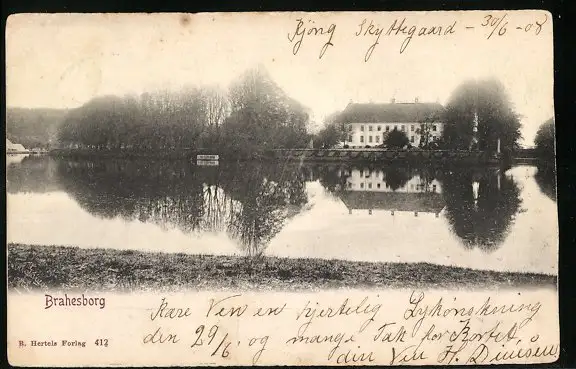 Kjöng Skyttegaard - 30/6 - 08
Brahesborg
Kære Ven en hjertelig Lykönskning
den 29/6. og mange Tak for Kortet,
din Ven H. Dinesen
R. Hertels Forlag 412